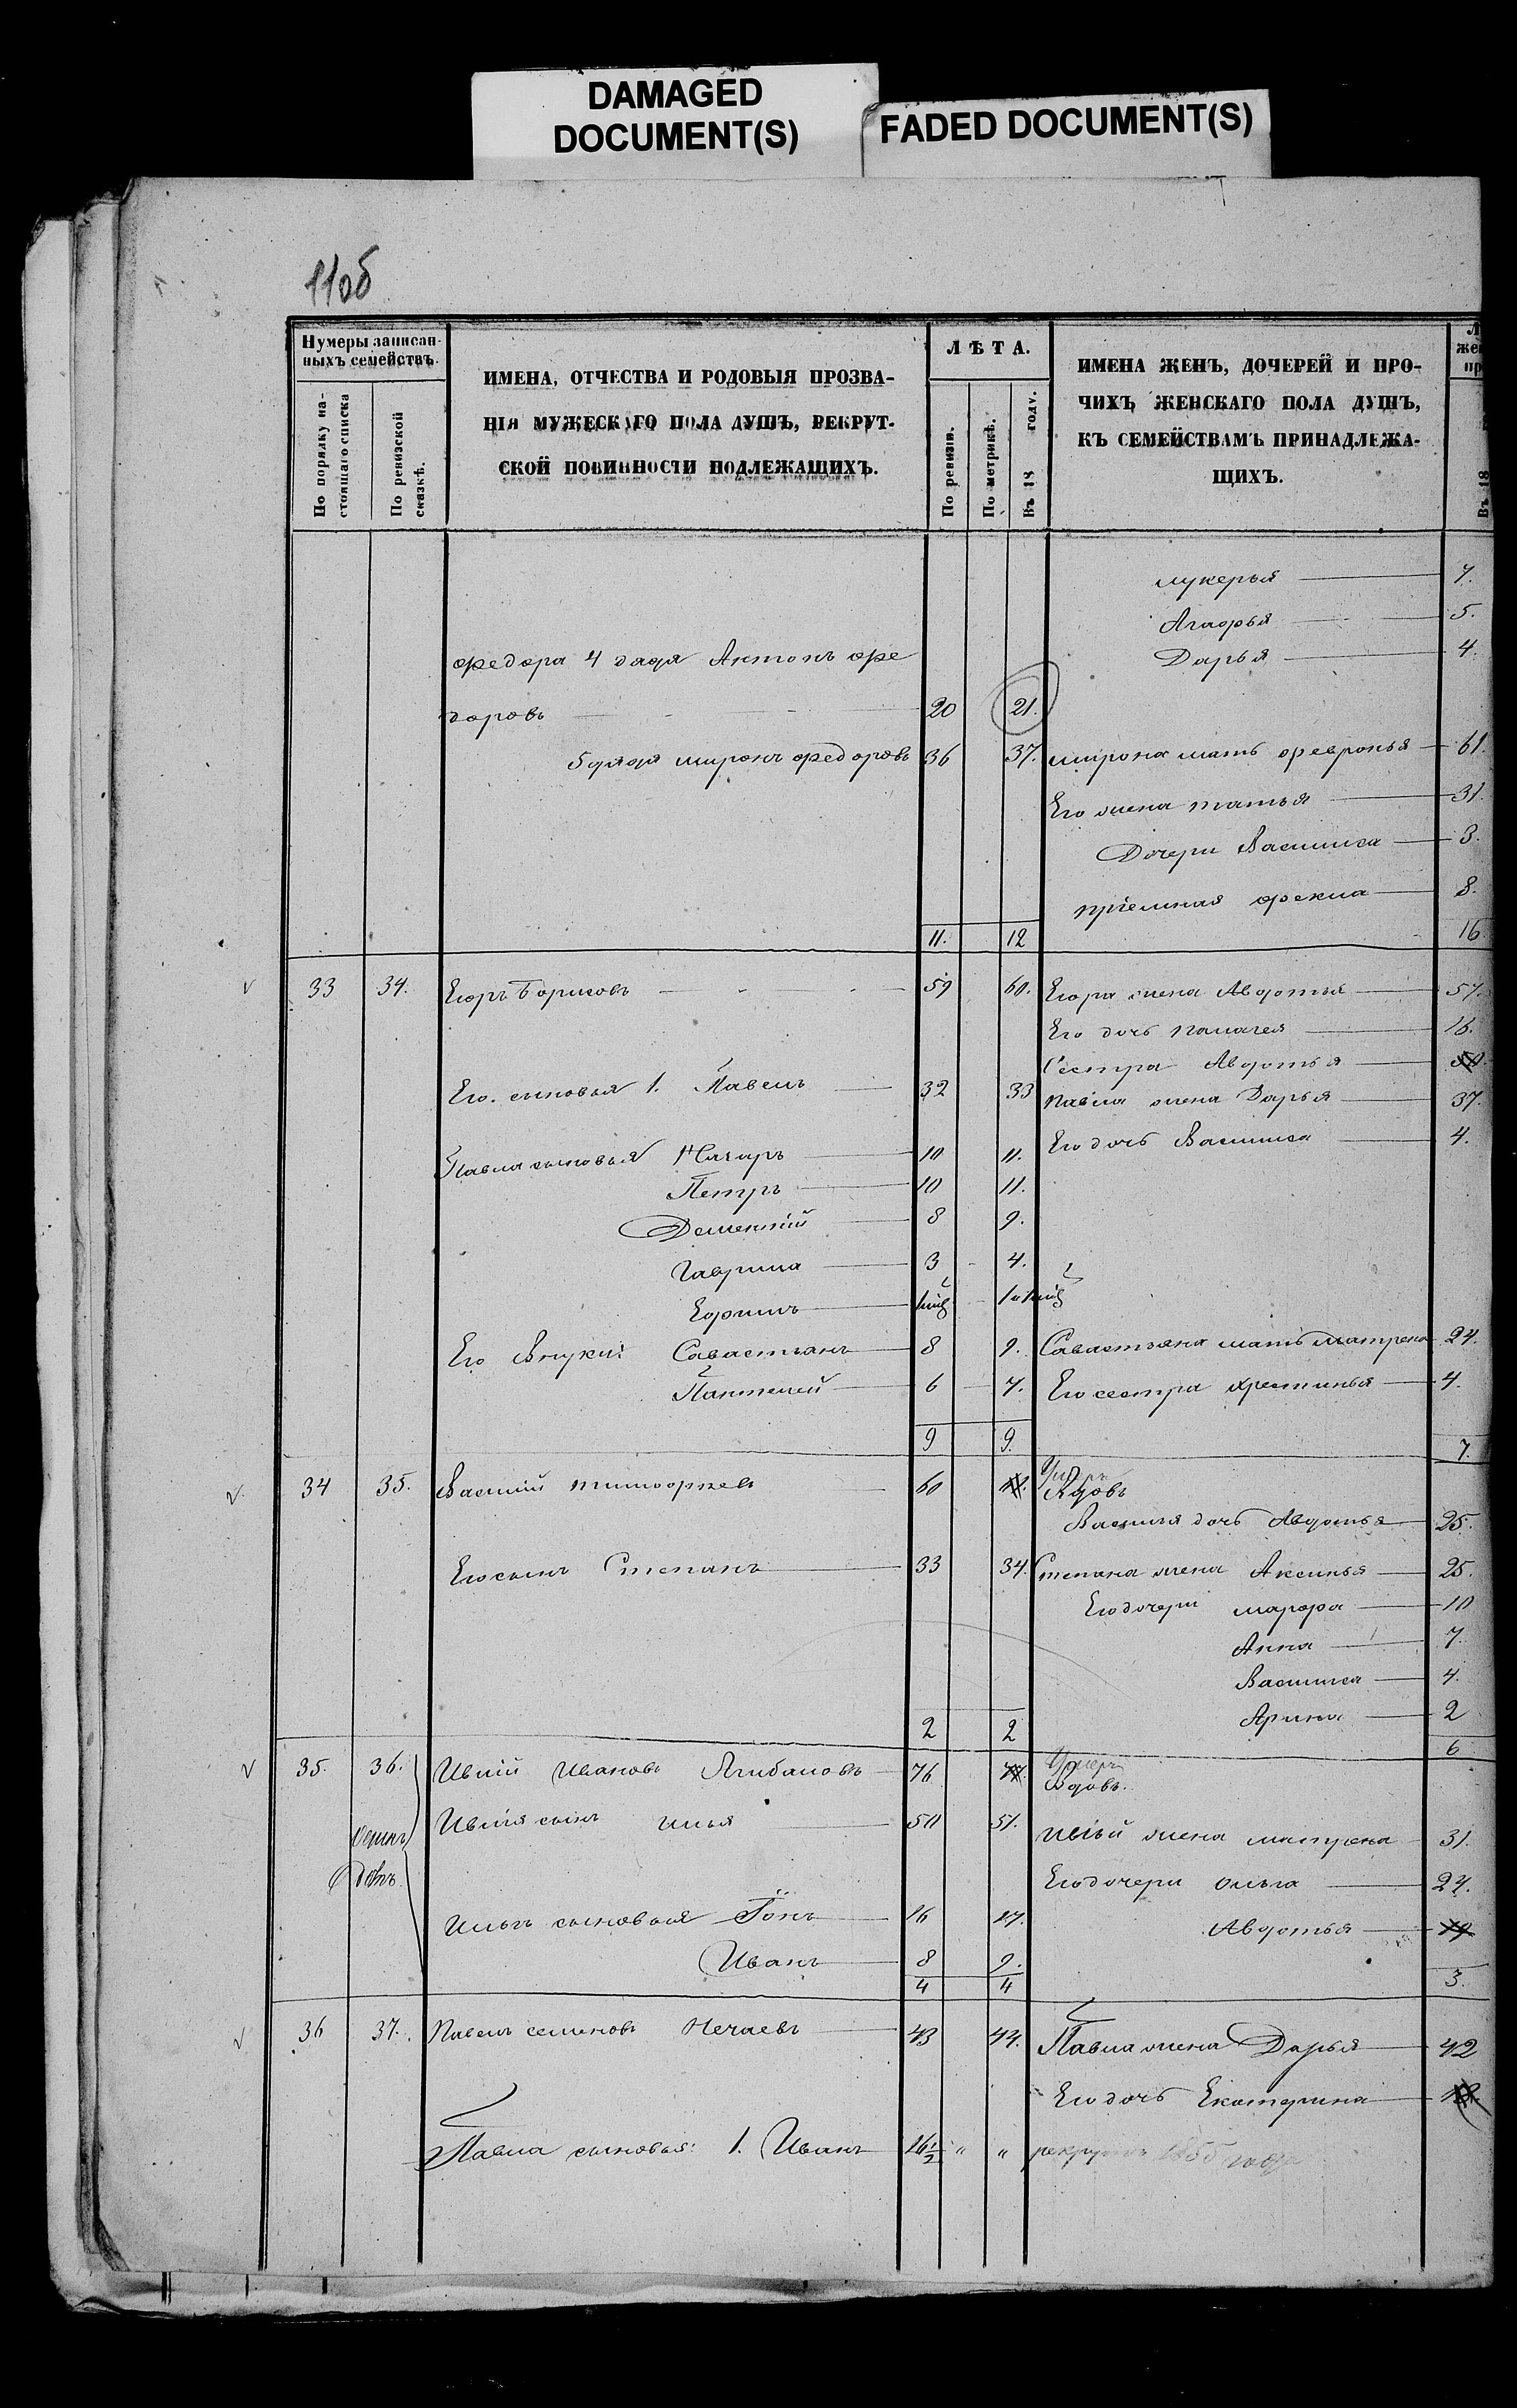 DAMAGED
DOCUMENT(S)
FADED DOCUMENT(S)
11об
Нумеры записан-
ныхъ семействъ.
По порядку на-
стоящаго списка
По ревизской
сказкѣ.
ИМЕНА, ОТЧЕСТВА И РОДОВЫЯ ПРОЗВА-
НІЯ МУЖЕСКАГО ПОЛА ДУШЪ, РЕКРУТ-
СКОЙ ПОВИННОСТИ ПОДЛЕЖАЩИХЪ.
ЛѢТА.
По ревизіи.
По метрикѣ.
Въ 18 году.
ИМЕНА ЖЕНЪ, ДОЧЕРЕЙ И ПРО-
ЧИХЪ ЖЕНСКАГО ПОЛА ДУШЪ,
КЪ СЕМЕЙСТВАМЪ ПРИНАДЛЕЖА-
ЩИХЪ.
Л
же
пр
Въ 18
лукерья 7.
Агафья 5.
Дарья 4.
федора 4 дядя Антонъ фе
доровъ 20 21.
5 дядя миронъ федоровъ 36 37. мирона мать февронья 61.
Его жена татья 31.
Дочери Василиса 3.
пріемная фекла 8.
11. 12 16
33 34. Егоръ Борисовъ 59 60. Егора жена Авдотья 57.
Его дочь палагея 16.
Сестра Авдотья
Его сыновья 1. Павелъ 32 33 павла жена Дарья 37.
Его дочь Василиса 4.
Павла сыновья Назаръ 10 11.
Петръ 10 11.
Дементій 8 9.
Гаврила 3 4.
Ефимъ
Его Внуки: Савастьянъ 8 9. Савастьяна мать матрена 24.
Пантелей 6 7. Его сестра хрестинья 4.
9 9. 7.
34 35. Василій тимофеевъ 60 Умеръ
Вдовъ
Василья дочь Авдотья 25.
Его сынъ Степанъ 33 34. Степана жена Аксинья 25.
Его дочери марфа 10
Анна 7.
Василиса 4.
Арина 2
2 2 6
35. 36. Ивлій Ивановъ 76 Умеръ
Вдовъ.
Ивлія сынъ илья 50 51. жена матрена 31.
Его дочери ольга 24.
ильи сыновья Іонъ 16 17. Авдотья
Иванъ 8 9.
4 4 3.
36 37. Павелъ семеновъ Нечаевъ 43 44. Павла жена Дарья 42
Его дочь Екатерина
Павла сыновья: 1. Иванъ 16½ " " рекрутъ 1855 года